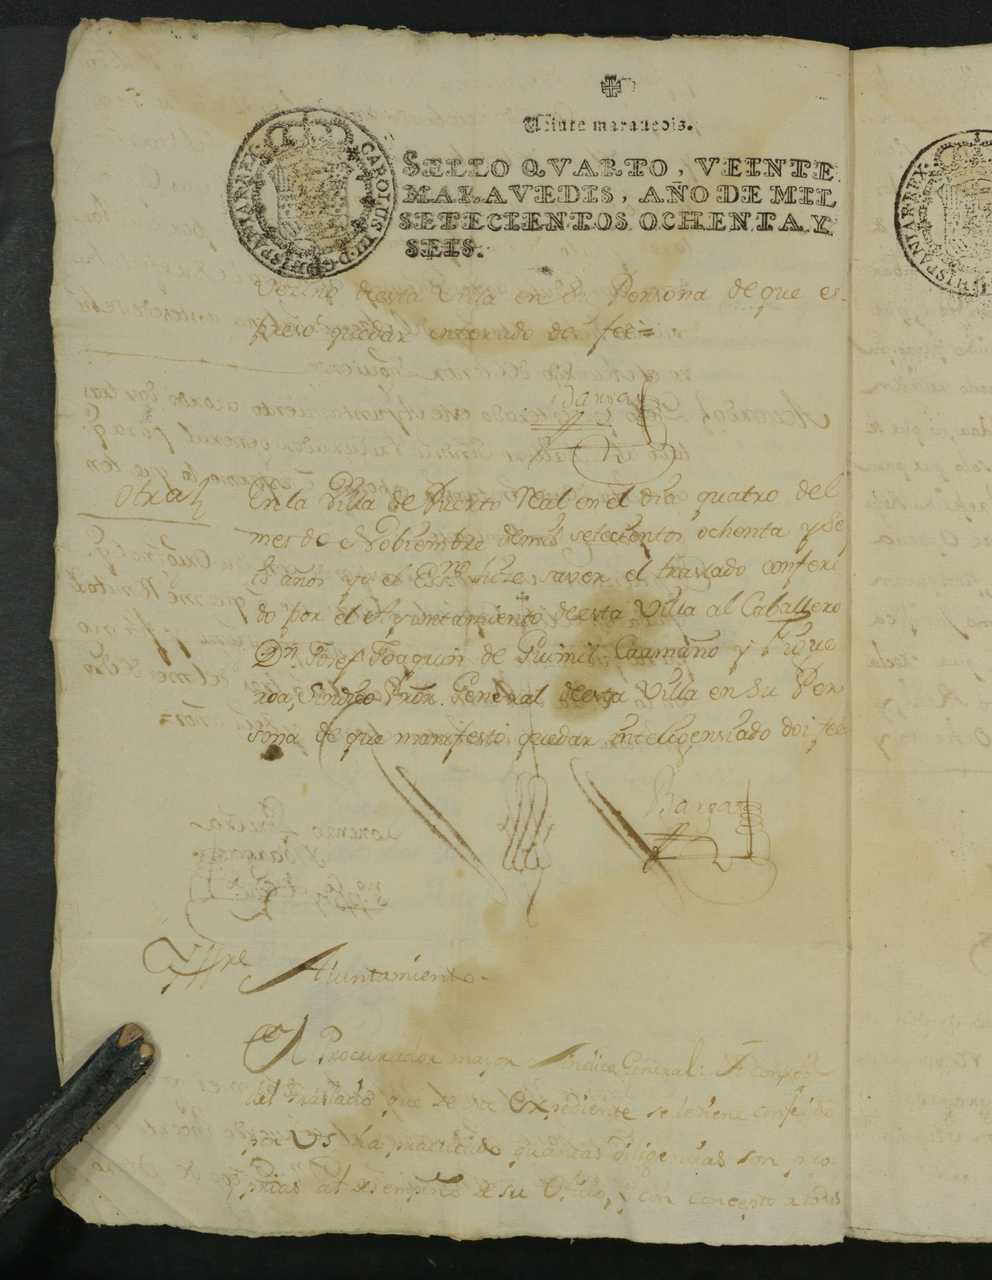 Veinte maravedis.
SELLO QVARTO, VEINTE
MARAVEDIS, AÑO DE MIL
SETECIENTOS OCHENTA Y
SEIS.
CAROLUS III D G HISPANIAR REX
Vezino desta Villa en su Persona de que es-
preso quedar enterado doi fee=
Barga
Otra
En la Villa de Puerto Real en el dia quatro del
mes de Nobiembre demil setecientos ochenta y Se
is años yo el Essno hize saver el traslado conferi
do por el Ayuntamiento desta Villa al Caballero
Dn Josef Joaquin de Guimil Caamaño y Figue
roa, Sindico Pror. General desta Villa en Su Per
sona de que manifesto quedar inteligensiado doi fee
Barga
Yllre Aiuntamiento.
El Procurador maior Sindico General:
del traslado que de este Expediente se le tiene conferido
por VS ha practicado quantas diligencias son pro
pias al desempeño de su Oficio, y con concepto a todas